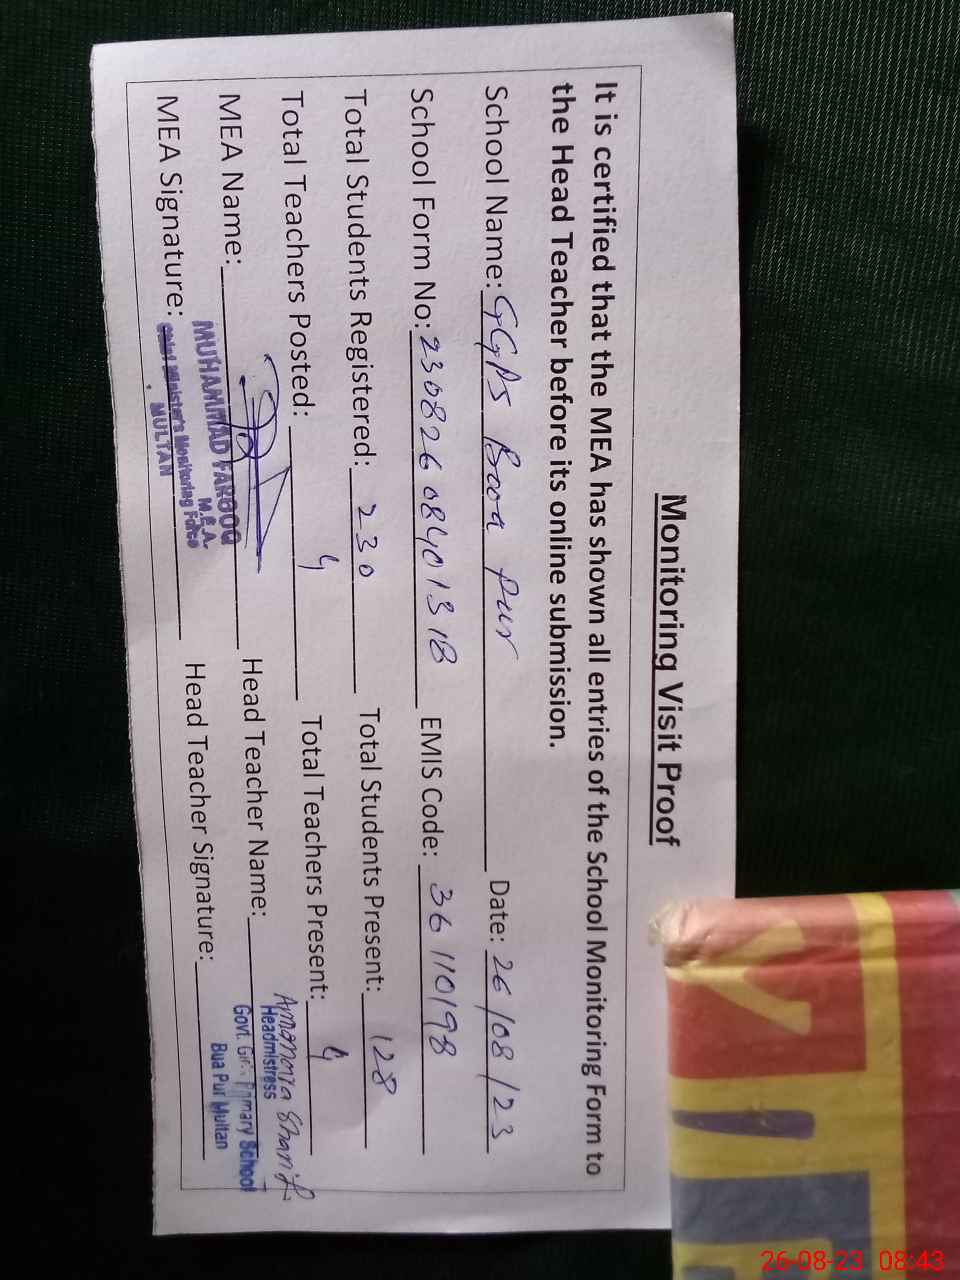 Monitoring Visit Proof
It is certified that the MEA has shown all entries of the School Monitoring Form to
the Head Teacher before its online submission.
School Name: GGPS Booa pur Date: 26/08/23
School Form No: 23082608401318 EMIS Code: 36110198
Total Students Registered: 230 Total Students Present: 128
Total Teachers Posted: 4 Total Teachers Present: 4
MEA Name: Head Teacher Name:
MEA Signature: Head Teacher Signature:
MUHAMMAD FAROOQ
M.E.A.
Chief Minister's Monitoring Force
MULTAN
Sharif
Headmistress
Govt. Girls Primary School
Bua Pur Multan
26-08-23 08:43